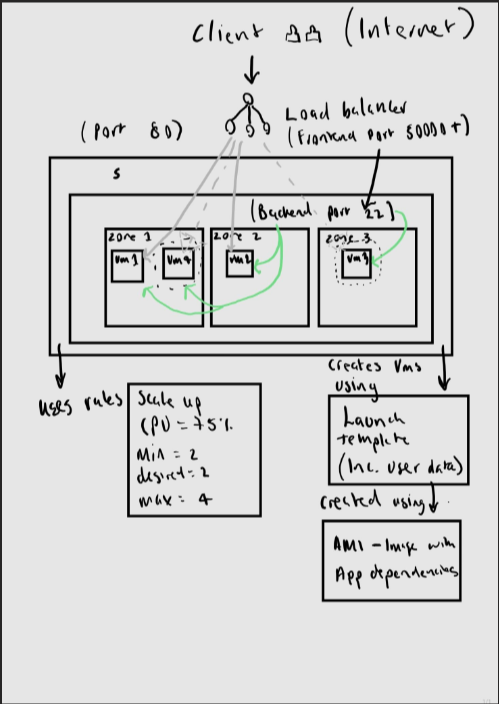 Client (Internet)
Load balancer
(Port 80)
(Frontend port 50000+)
s
(Backend port 22)
zone 1
zone 2
zone 3
Vm1
Vm4
Vm2
Vm3
uses rules
Scale up
CPU = 75%
Min = 2
desired = 2
max = 4
Creates Vms
using
Launch
template
(Inc. user data)
Created using
AMI - Image with
App dependencies